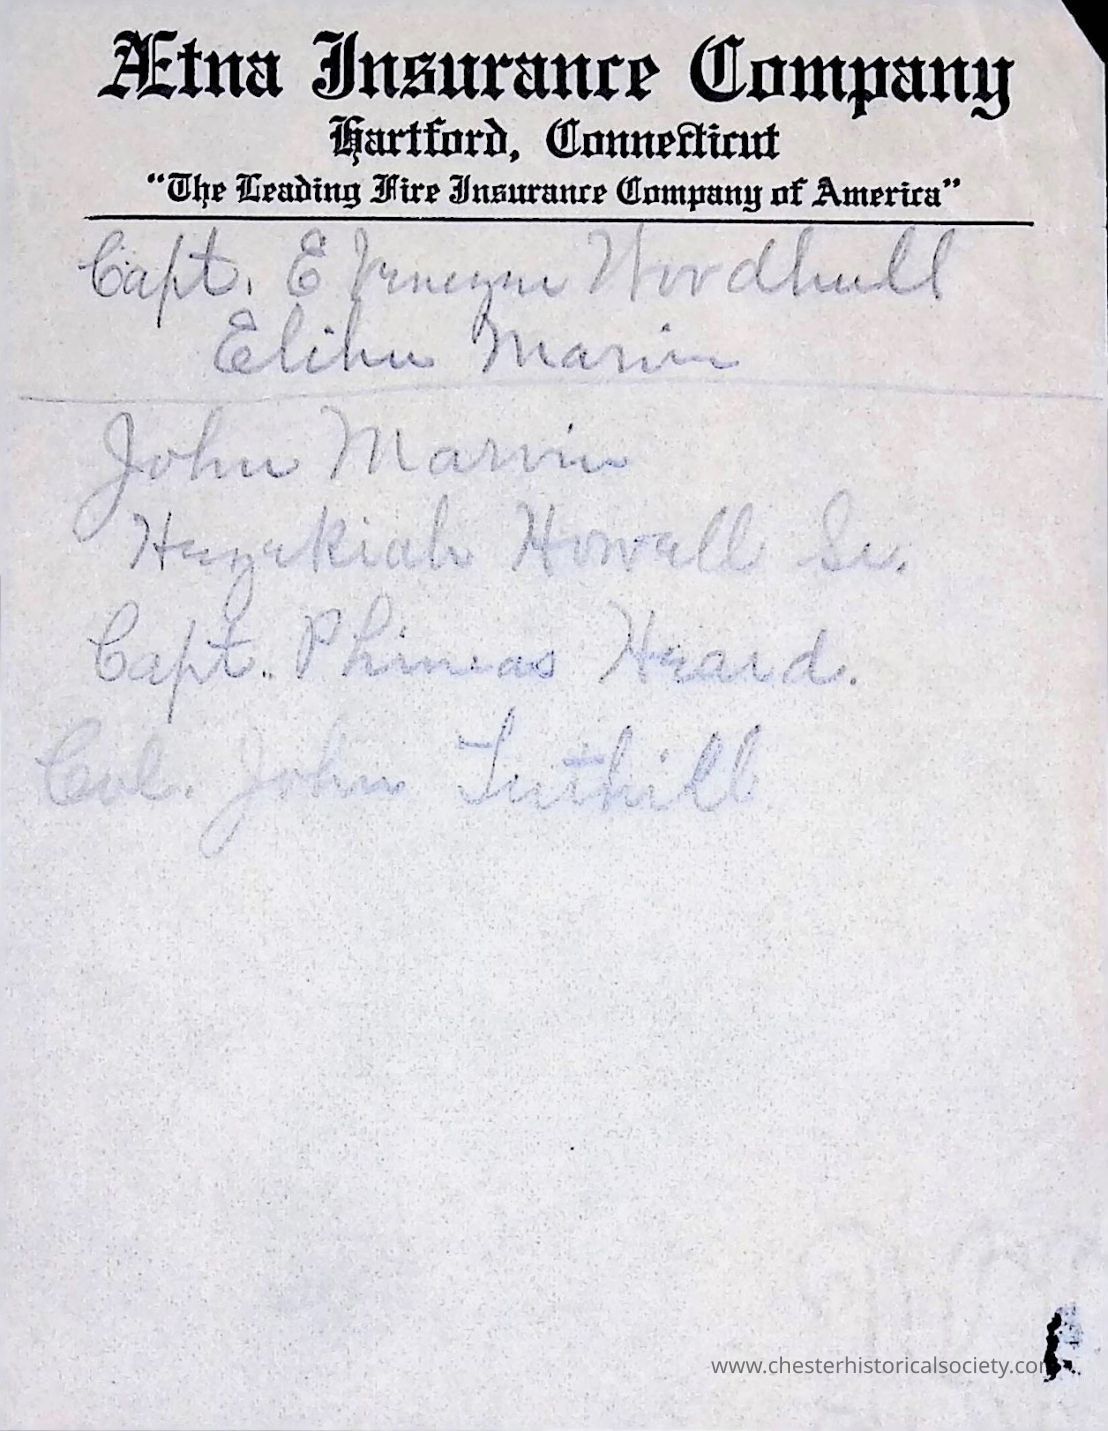 Ætna Insurance Company
Hartford, Connecticut
"The Leading Fire Insurance Company of America"
Capt. E Woodhull
Elihu Marvin
John Marvin
Hezekiah Howell Sr.
Capt. Phineas Heard.
Col. John Tuthill
www.chesterhistoricalsociety.com